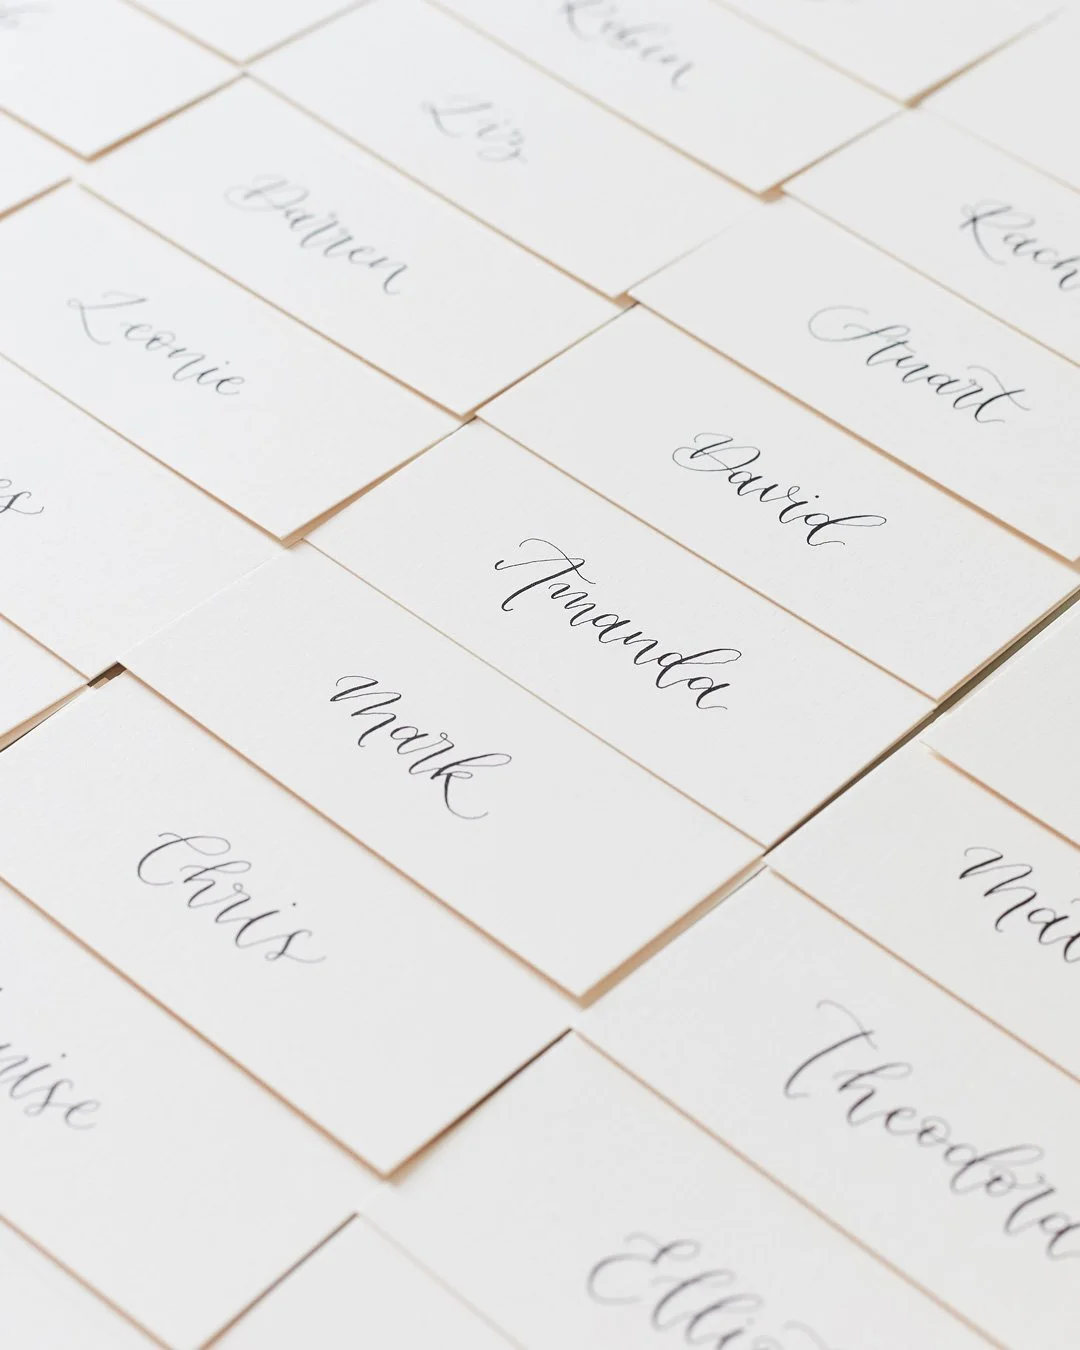 Robin
Liz
Darren
Rach
Leonie
Stuart
David
Amanda
Mark
Chris
Theodora